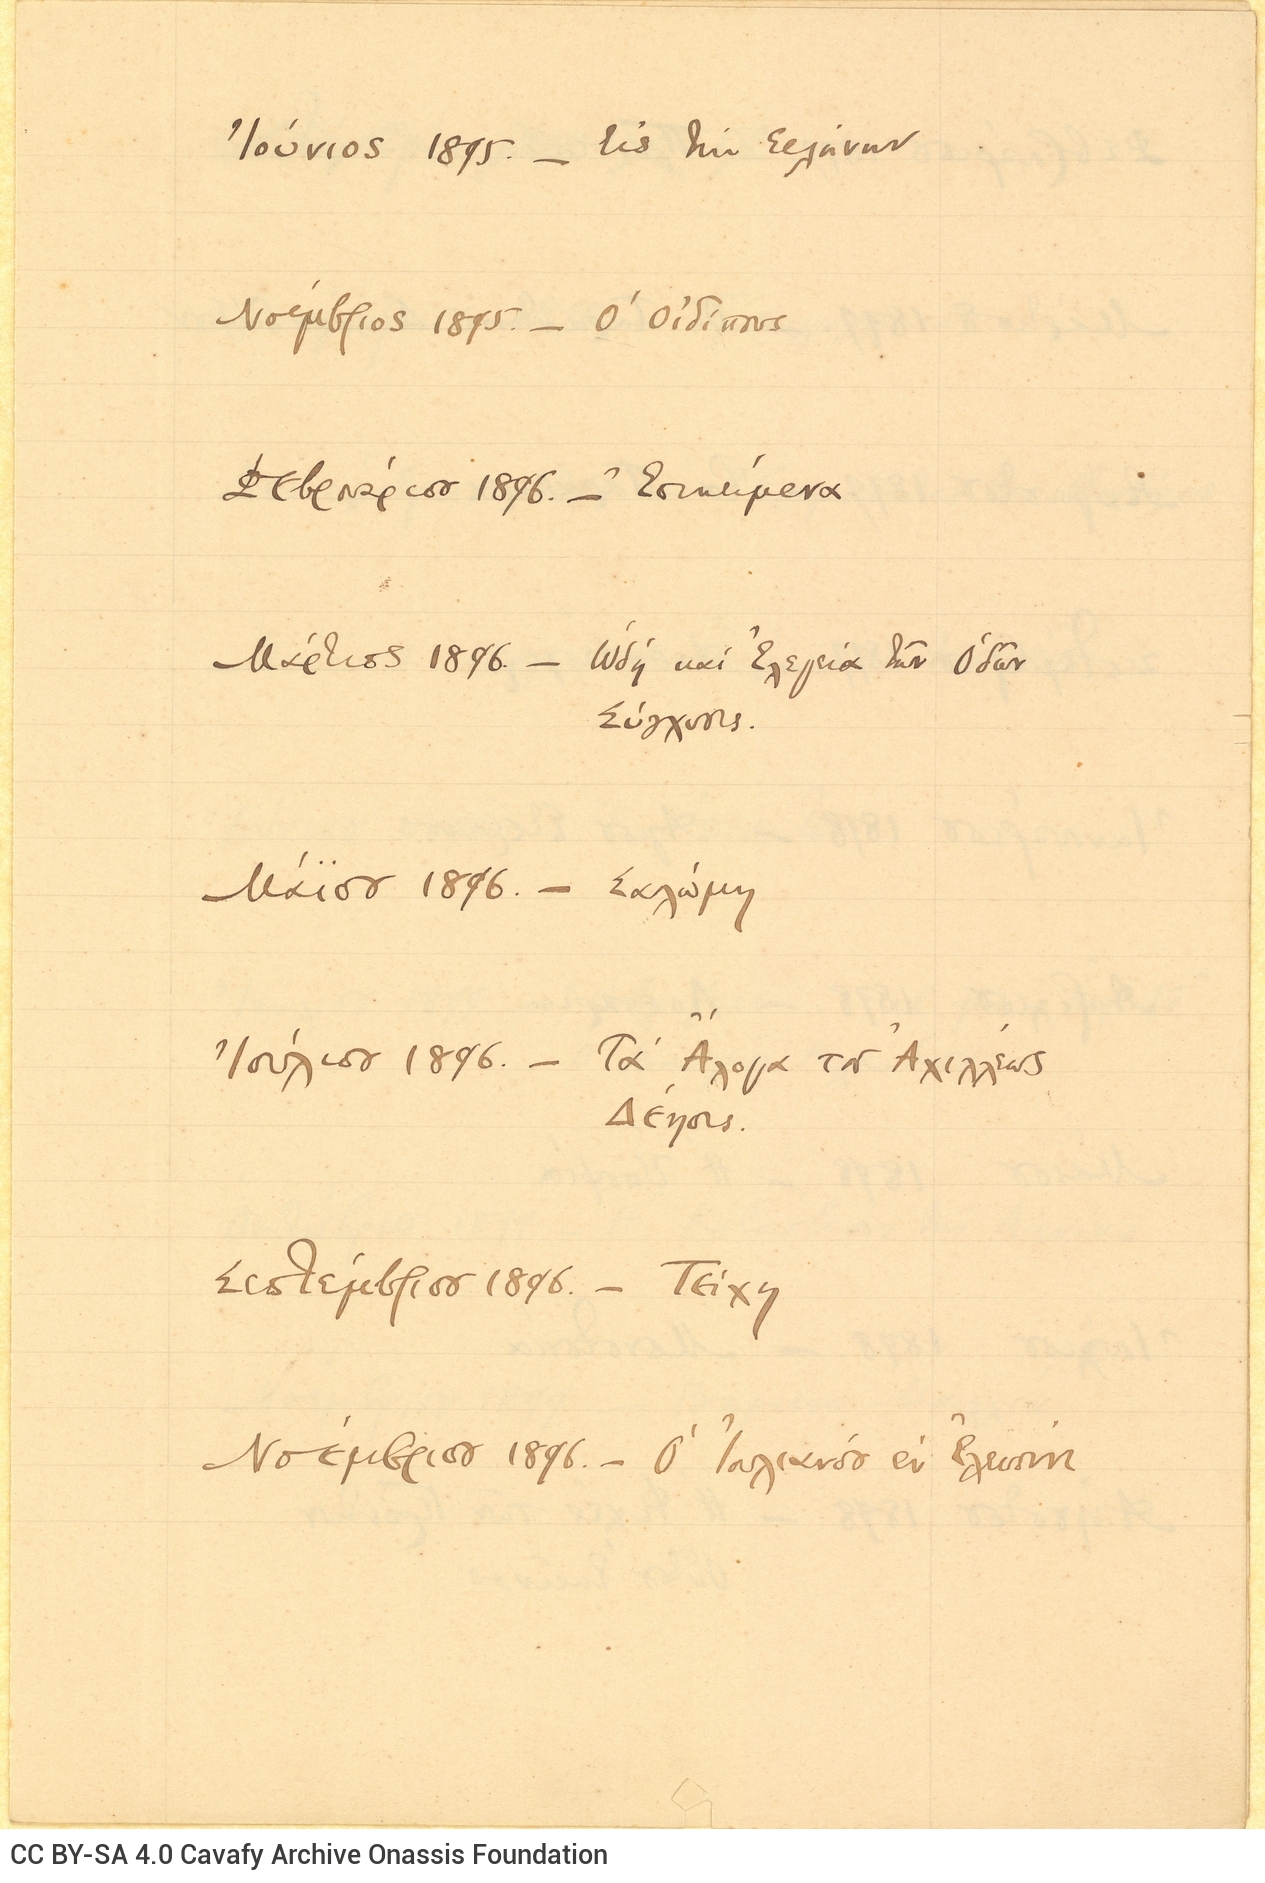 Ἰούνιος 1895. — Εἰς τὴν Σελήνην
Νοέμβριος 1895. — Ὁ Οἰδίπους
Φεβρουάριου 1896. — Ἐπικείμενα
Μάρτιος 1896. — Ὠδὴ καὶ Ἐλεγεία τῶν Ὁδῶν
Σύγχυσις.
Μάϊου 1896. — Σαλώμη
Ἰουλίου 1896. — Τὰ Ἄλογα τοῦ Ἀχιλλέως
Δέησις.
Σεπτέμβριου 1896. — Τείχη
Νοέμβριου 1896. — Ὁ Ἰουλιανὸς ἐν Ἐλευσῖνι
CC BY-SA 4.0 Cavafy Archive Onassis Foundation